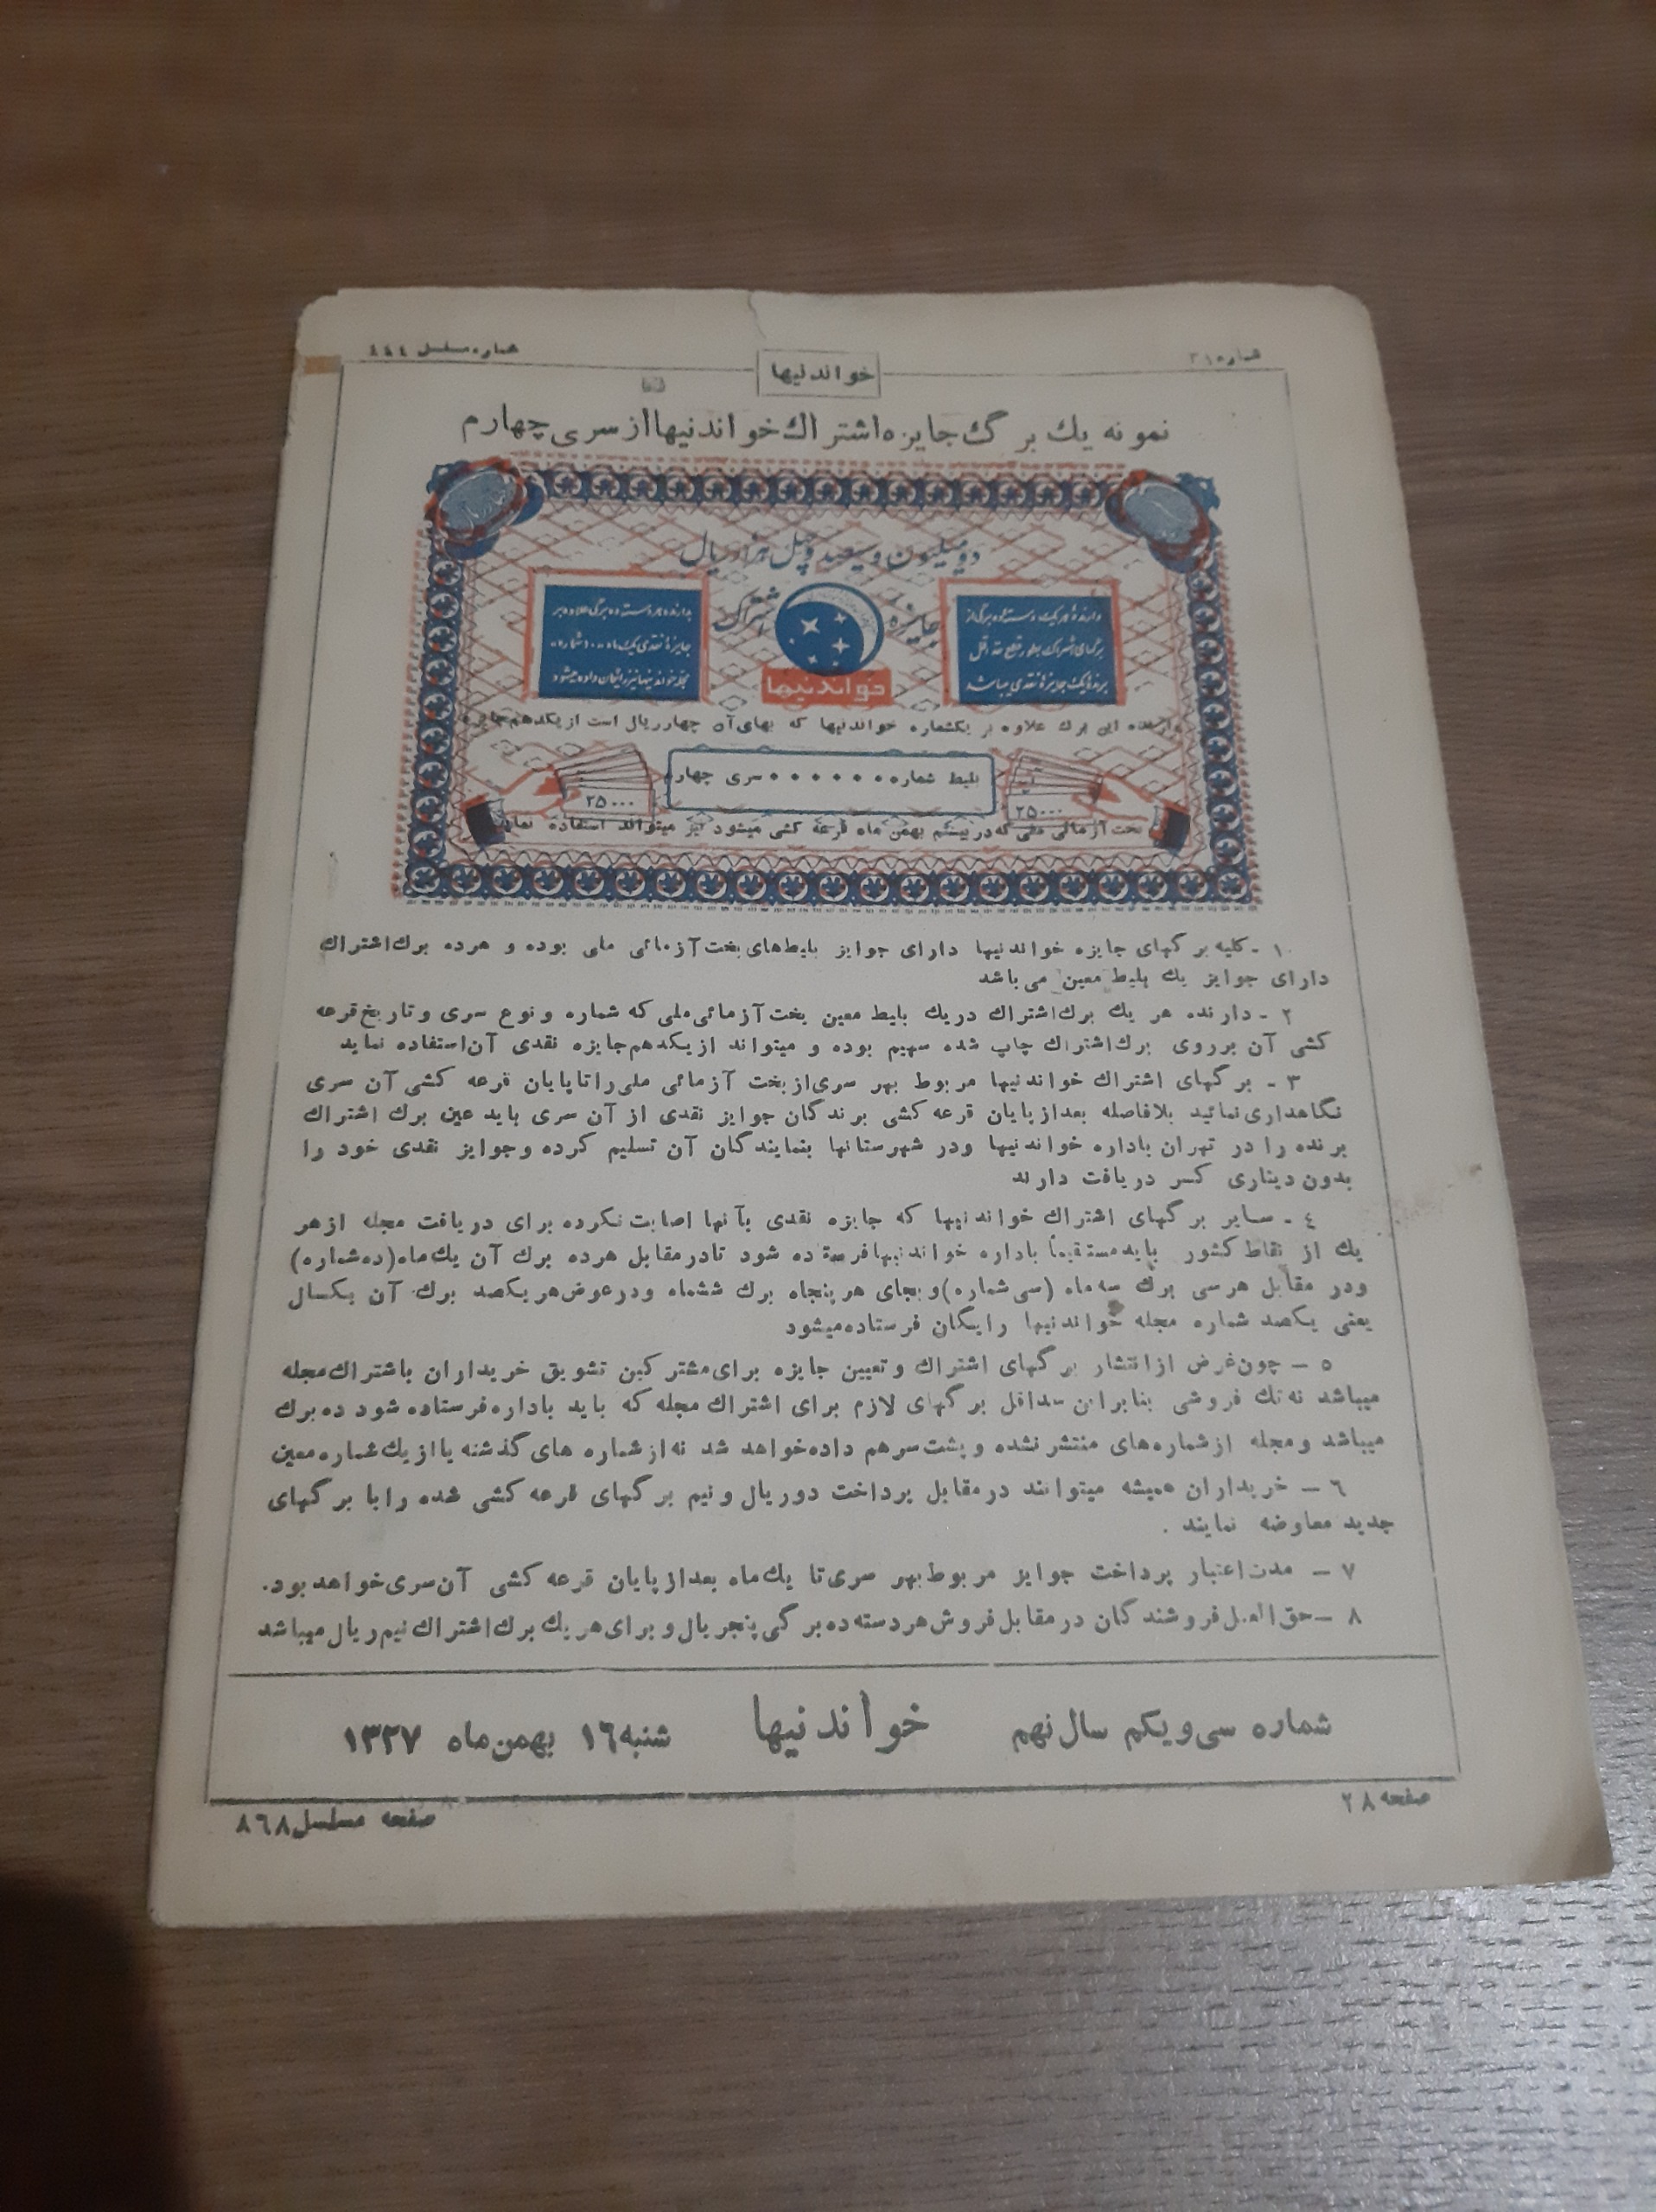 شماره ۳۱
خواندنیها
شماره مسلسل
نمونه یك برگ جایزه اشتراك خواندنیها از سری چهارم
دو میلیون و سیصد و چهل هزار ریال
جایزه اشتراك
دارندهٔ هر یك دسته ده برگی از
برگهای اشتراك بطور قطع حد اقل
برندهٔ یك جایزهٔ نقدی میباشد
بدارنده هر دسته ده برگی علاوه بر
جایزهٔ نقدی یك ماه - ۱۰ شماره -
مجله خواندنیها نیز رایگان داده میشود
خواندنیها
دارنده این برك علاوه بر یکشماره خواندنیها که بهای آن چهار ریال است از یکدهم جایزه
بلیط شماره • • • • • • • سری چهارم
۲۵۰۰۰
۲۵۰۰۰
بخت آزمائی ملی که در بیستم بهمن ماه قرعه کشی میشود نیز میتواند استفاده نماید
۱ - کلیه برگهای جایزه خواندنیها دارای جوایز بلیطهای بخت آزمائی ملی بوده و هرده برك اشتراك
دارای جوایز یك بلیط معین می باشد
۲ - دارنده هر یك برك اشتراك دریك بلیط معین بخت آزمائی ملی که شماره و نوع سری و تاریخ قرعه
کشی آن برروی برك اشتراك چاپ شده سهیم بوده و میتواند از یکدهم جایزه نقدی آن استفاده نماید
۳ - برگهای اشتراك خواندنیها مربوط بهر سری از بخت آزمائی ملی را تا پایان قرعه کشی آن سری
نگاهداری نمائید بلافاصله بعد از پایان قرعه کشی برندگان جوایز نقدی از آن سری باید عین برك اشتراك
برنده را در تهران باداره خواندنیها ودر شهرستانها بنمایندگان آن تسلیم کرده وجوایز نقدی خود را
بدون دیناری کسر دریافت دارند
٤ - سایر برگهای اشتراك خواندنیها که جایزه نقدی بآنها اصابت نکرده برای دریافت مجله از هر
یك از نقاط کشور باید مستقیماً باداره خواندنیها فرستاده شود تا در مقابل هرده برك آن یك ماه (ده شماره)
ودر مقابل هرسی برك سه ماه (سی شماره) و بجای هر پنجاه برك ششماه ودرعوض هر یکصد برك آن یکسال
یعنی یکصد شماره مجله خواندنیها رایگان فرستاده میشود
۵ – چون غرض از انتشار برگهای اشتراك و تعیین جایزه برای مشترکین تشویق خریداران باشتراك مجله
میباشد نه تك فروشی بنابراین حداقل برگهای لازم برای اشتراك مجله که باید باداره فرستاده شود ده برك
میباشد و مجله از شماره های منتشر نشده و پشت سر هم داده خواهد شد نه از شماره های گذشته یا از یك شماره معین
٦ – خریداران همیشه میتوانند در مقابل پرداخت دو ریال و نیم برگهای قرعه کشی شده را با برگهای
جدید معاوضه نمایند .
۷ – مدت اعتبار پرداخت جوایز مربوط بهر سری تا یك ماه بعد از پایان قرعه کشی آن سری خواهد بود.
۸ – حق العمل فروشندگان در مقابل فروش هر دسته ده برگی پنجریال و برای هر یك برك اشتراك نیم ریال میباشد
شماره سی و یکم سال نهم خواندنیها شنبه ۱٦ بهمن ماه ۱۳۲۷
صفحه ۲۸
صفحه مسلسل ۸٦۸